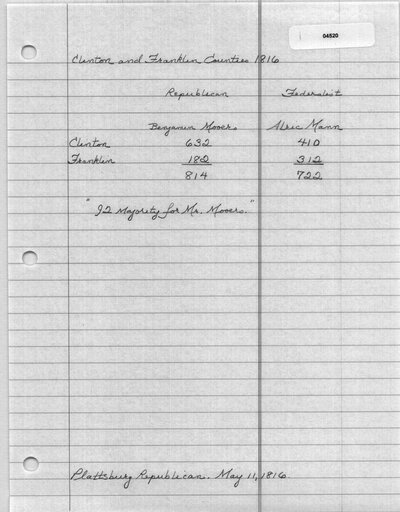 04520
Clinton and Franklin Counties 1816
Republican Federalist
Benjamin Mooers Alric Mann
Clinton 632 410
Franklin 182 312
814 722
"92 Majority for Mr. Mooers."
Plattsburg Republican. May 11, 1816.